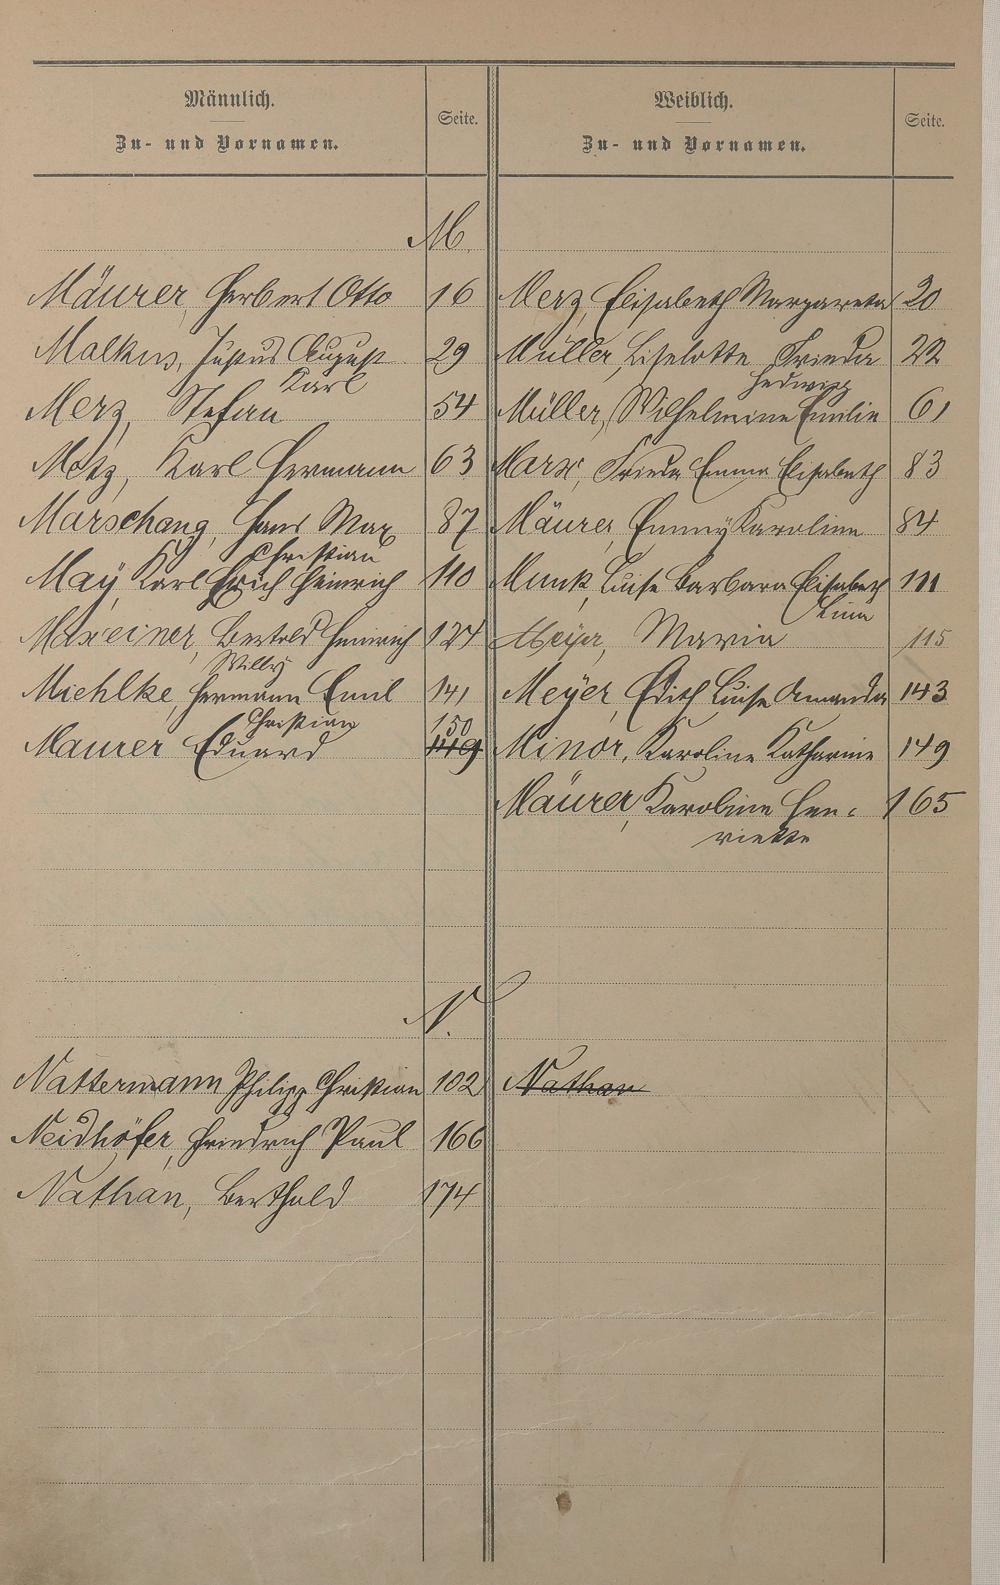 Männlich.
Zu- und Vornamen.
Seite.
Weiblich.
Zu- und Vornamen.
Seite.
M.
Mäurer, Herbert Otto 16
Malkus, Justus August 29
Karl
Merz, Stefan 54
Metz, Karl Hermann 63
Marschang, Hans Max 87
Christian
May, Karl Erich Heinrich 110
Mareiner, Bertold Heinrich 127
Willy
Miehlke, Hermann Emil 141
Christian 150
Maurer Eduard 149
Merz, Elisabeth Margareta 20
Müller, Liselotte Frieda 22
Hedwig
Müller, Wilhelmine Emilie 61
Marx, Frieda Emma Elisabeth 83
Mäurer, Emmy Karoline 84
Munk, Luise Barbara Elisabeth 111
Lina
Meyer, Maria 115
Meyer, Edith Luise Amanda 143
Minor, Karoline Katharine 149
Mäurer, Karoline Hen- 165
riette
N.
Nattermann Philipp Christian 102
Neidhöfer, Friedrich Paul 166
Nathan, Berthold 174
Nathan